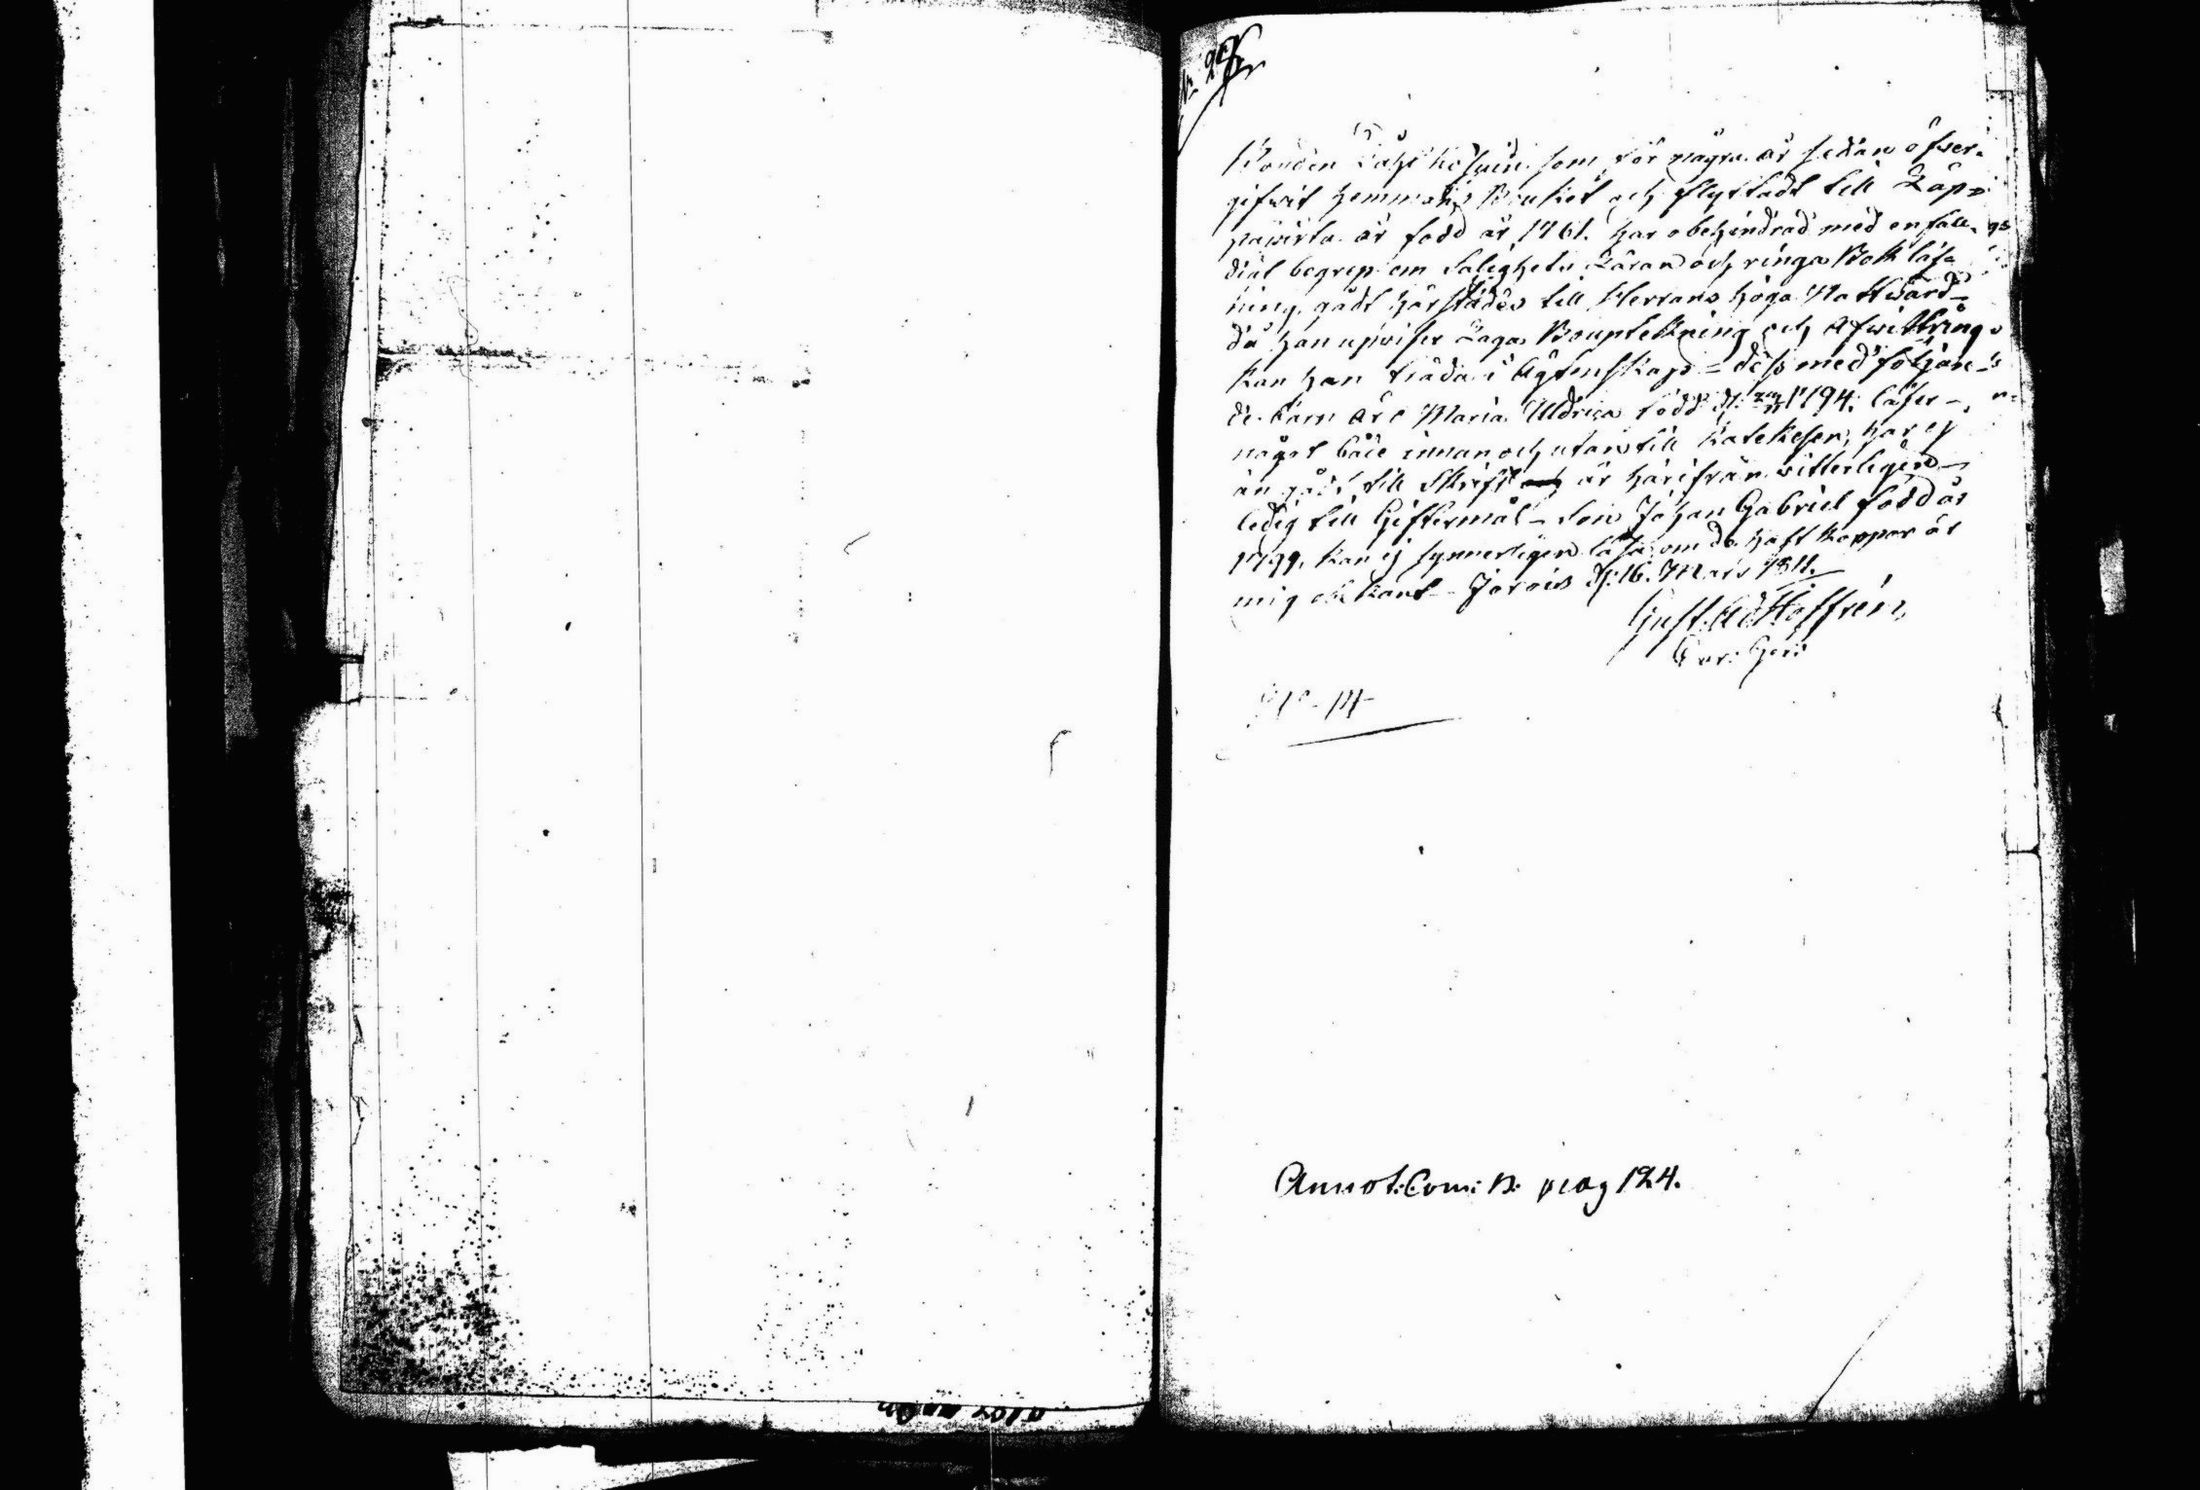 Bonden som för några år sedan öfwer-
gifwit hemmans Bruket och flyttadt till Läp-
pawirta är född år 1761. har obehindrad med enfall-
digt begrep om Salighets Läran och ringa Bok läs-
ning gådt härstädes till Herrans höga Nattward-
då han upwiser Laga Bouptekning och Afwittring
kan han träda i Ägtenskap = dess med följan-
de barn äro Maria Uldrica född d. 1794. läser-
något både innan och utan till Katekesen, har ej
än gådt till Skrift är härifrån witterligen-
ledig till Giftermål - Son Johan Gabriel född år
1799. kan ej synnerligen läsa, om de haft koppor är
mig obekant - Jorois d. 16. Mars 1811.
Gust. Ad Hoffrén,
Annot: Com: B: pag 124.